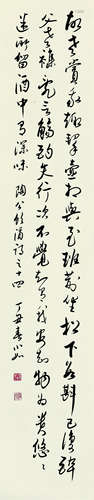 故人賞我趣挈壺相與至班荆坐松下數斟已復醉
父老雜亂言觴酌失行次不覺知有我安知物為貴悠悠
迷所留酒中有深味 陶公飲酒詩之十四 丁丑春小如